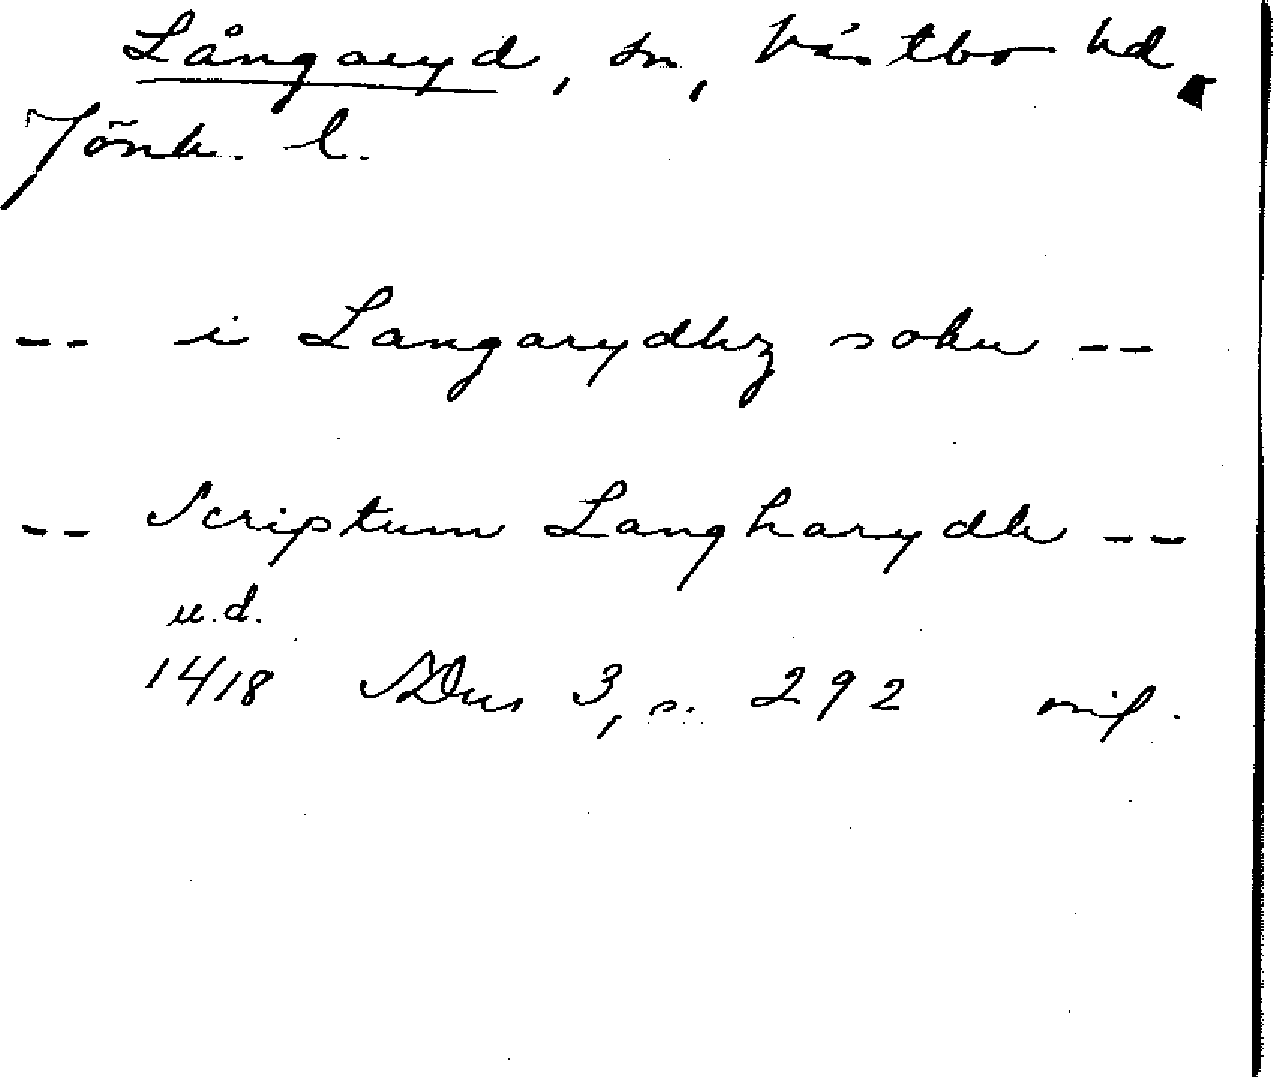 Långaryd, sn, Västbo hd,
Jönk. l.
-- i Langarydhz sokn --
-- Scriptum Langharydh --
u.d.
1418 SDns 3, s. 292 orig.